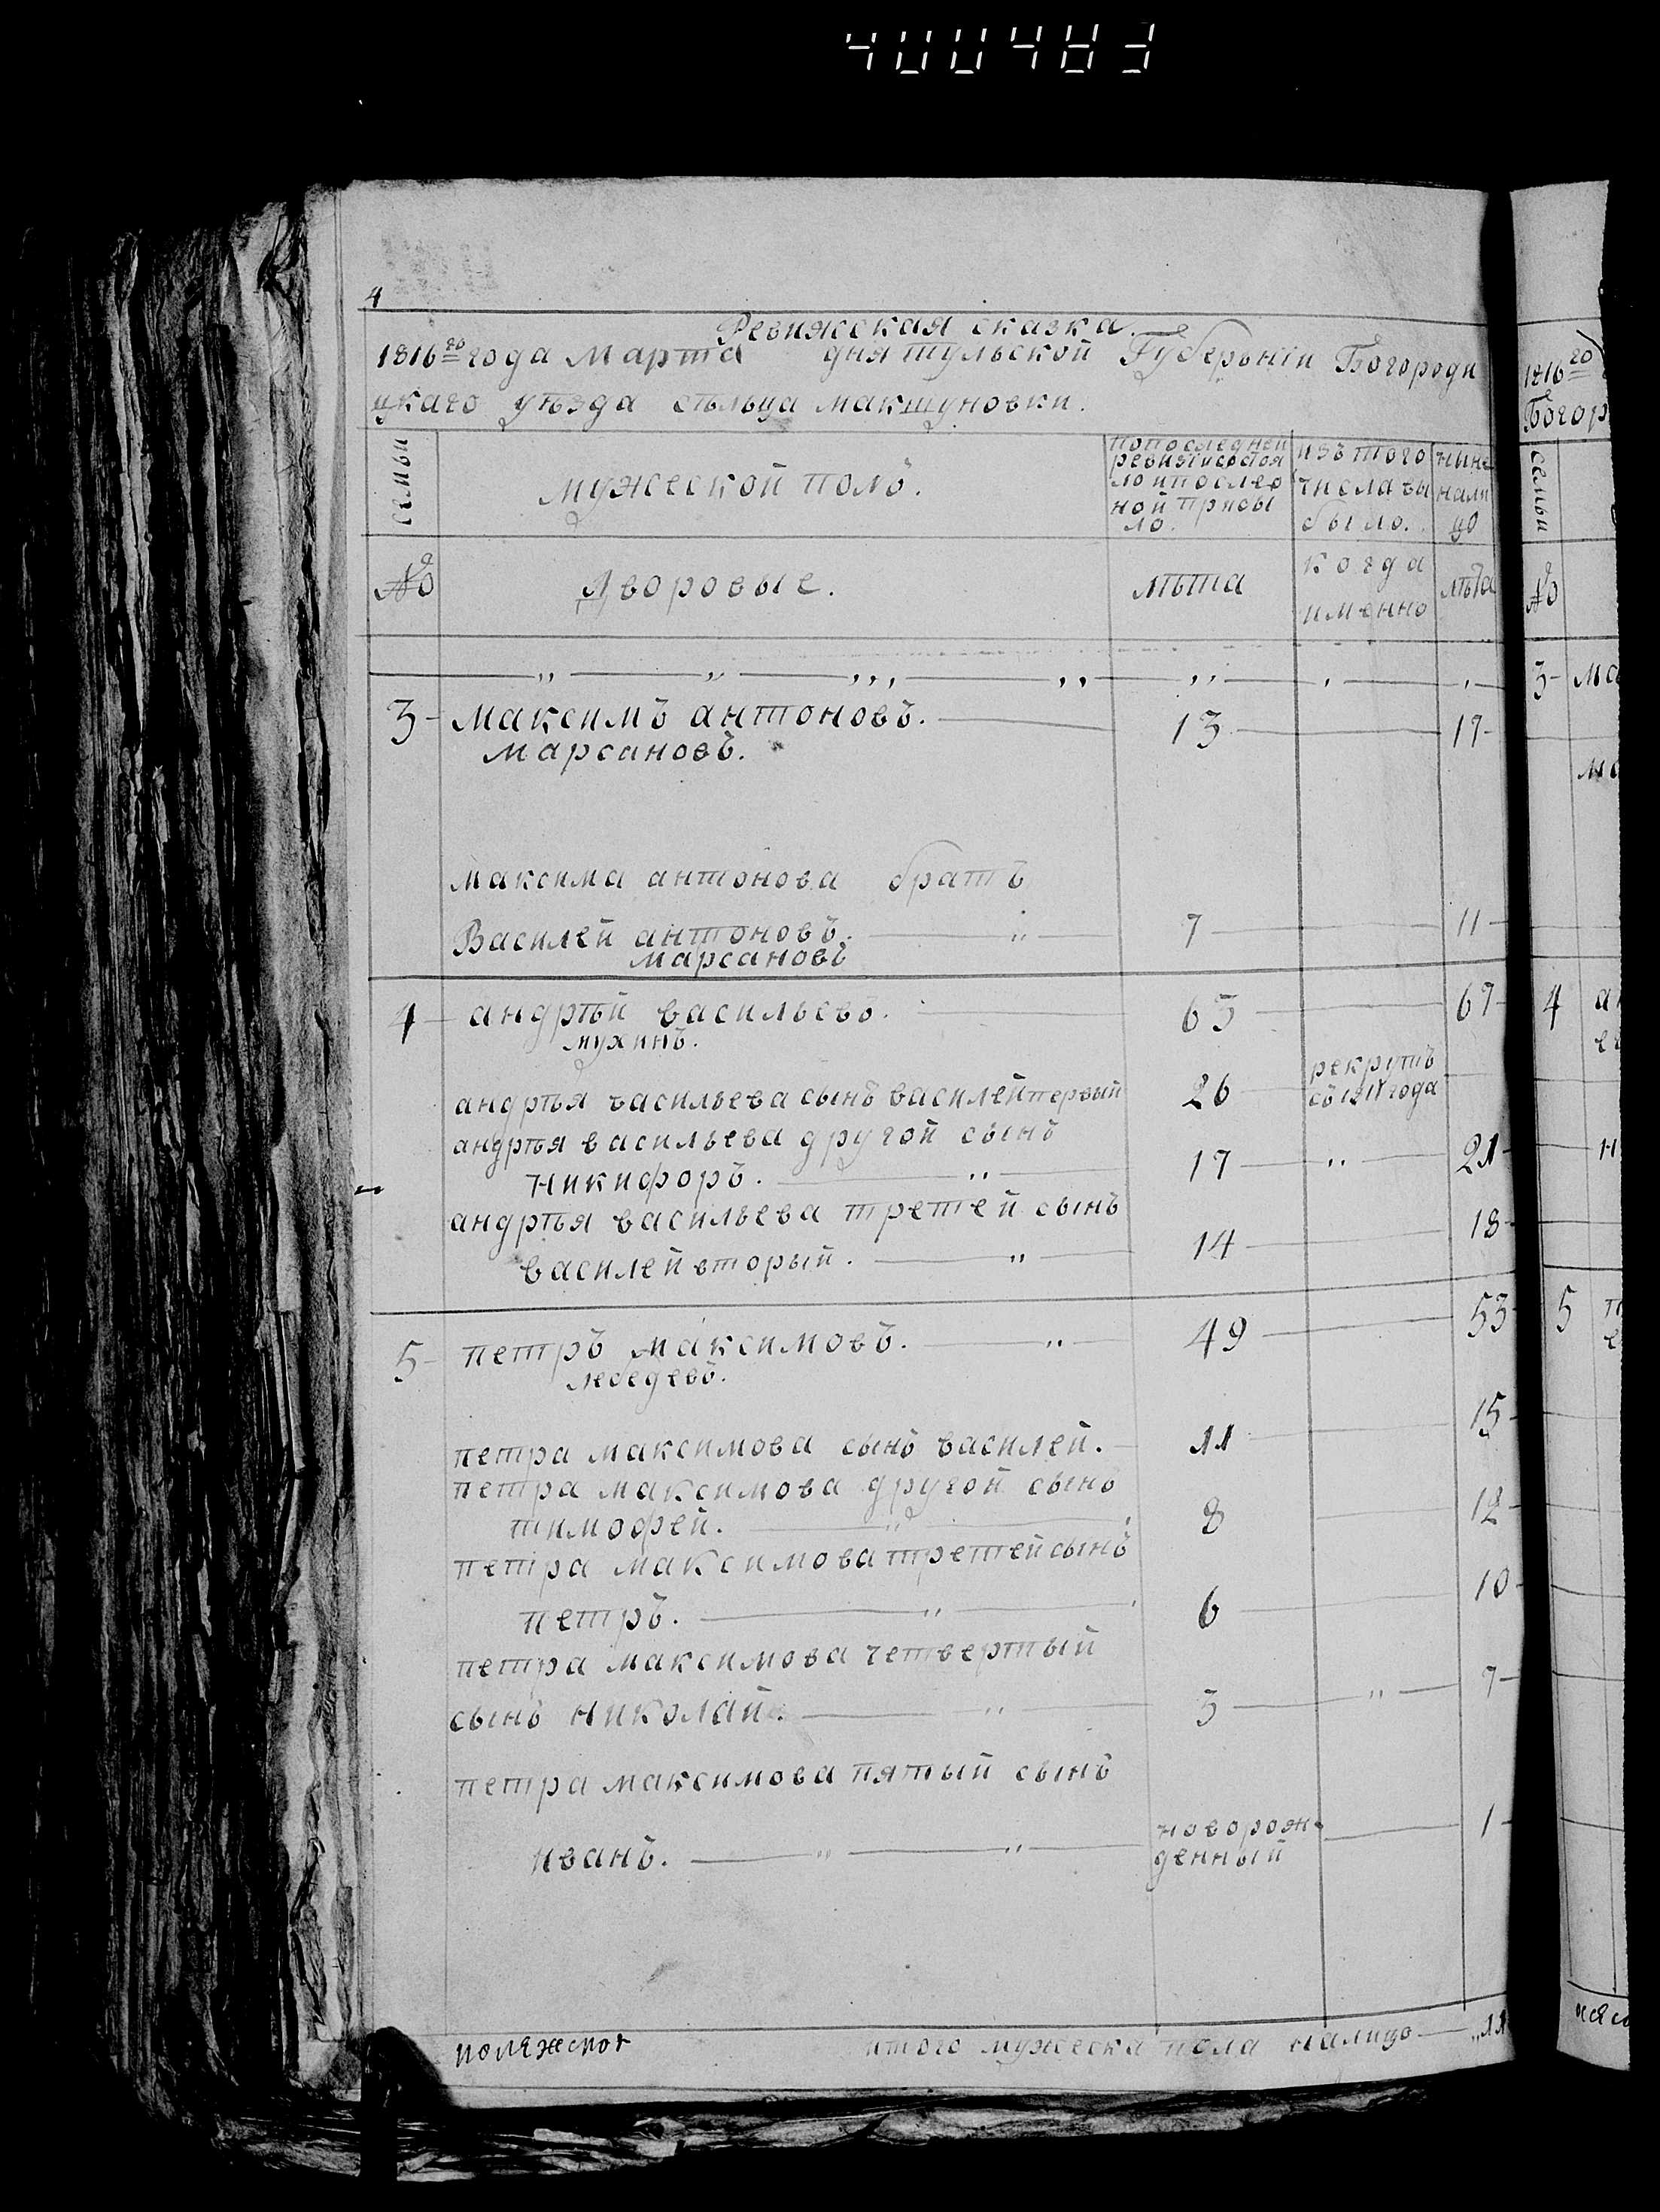 400483
4
Ревижская сказка.
1816го года Марта дня тульской Губерьнiи Богороди
цкаго уѣзда сѣльца макшуновки.
семьи
мужеской полъ.
попоследней
ревизiи состоя
ло и после о
ной прибы
ло.
изъ того
числа вы
было.
ныне
нали
цо
№
Дворовые.
лѣта
когда
именно
лѣта
3 максимъ антоновъ. 13 17
марсановъ.
максима антонова братъ
Василей антоновъ. 7 11
марсановъ
4 андрѣй васильевъ. 63 67
мухинъ.
андрѣя васильева сынъ василей первый 26 рекрутъ
съ 1811 года
андрѣя васильева другой сынъ
никифоръ. 17 21
андрѣя васильева третей сынъ
василей вторый. 14 18
5 петръ максимовъ. 49 53
лебедевъ.
петра максимова сынъ василей. 11 15
петра максимова другой сынъ
тимофей. 8 12
петра максимова третей сынъ
петръ. 6 10
петра максимова четвертый
сынъ николай. 3 7
петра максимова пятый сынъ
иванъ. новорож-
денный 1
итого мужеска пола налицо 11
1816го
Богор
семьи
№
3 ма
4
5